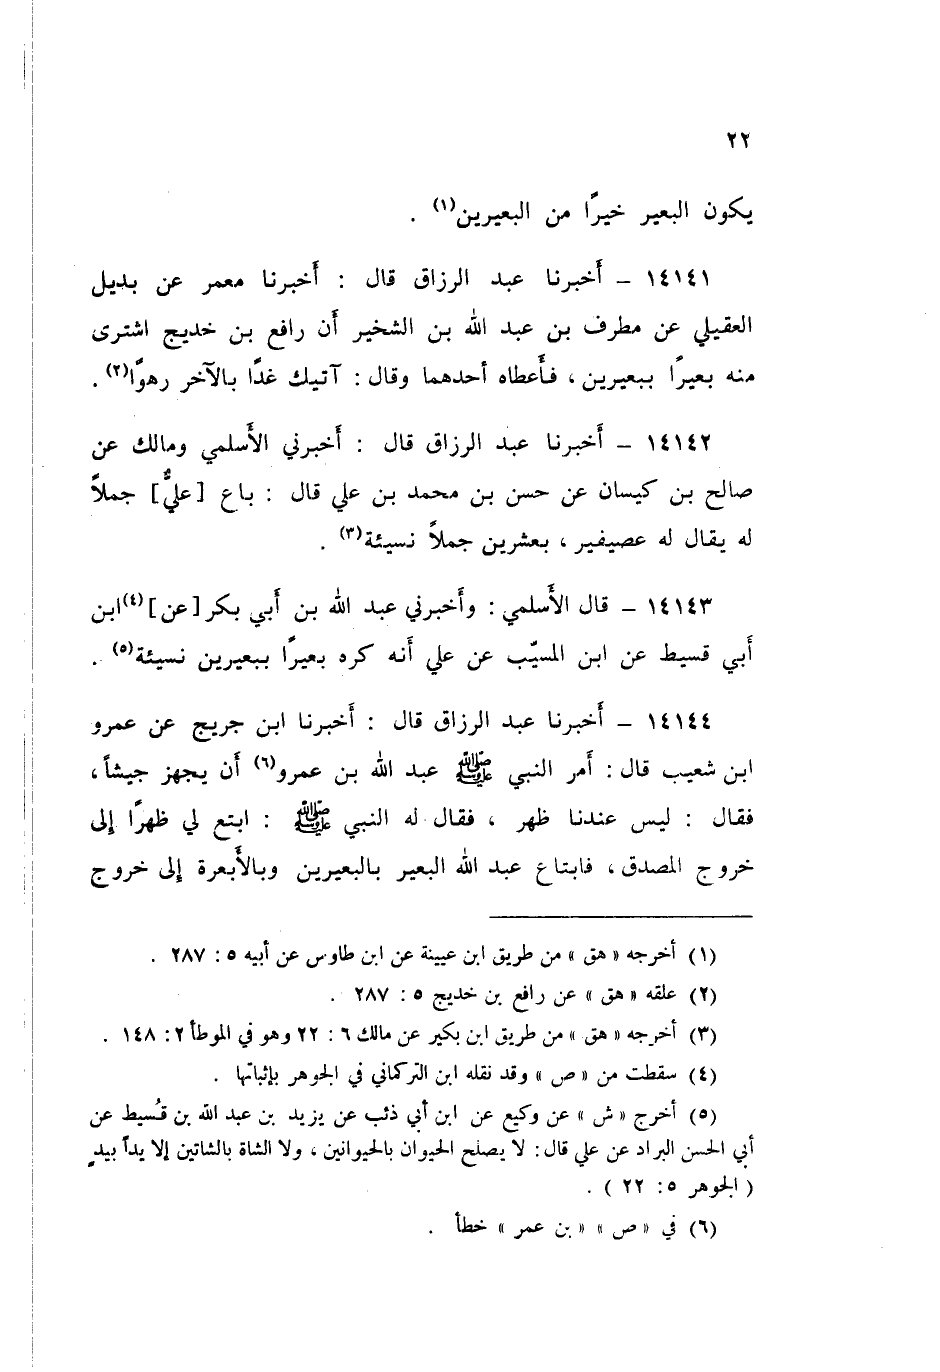 ٢٢
يكون البعير خيرًا من البعيرين(١) .
١٤١٤١ – أخبرنا عبد الرزاق قال : أخبرنا معمر عن بديل
العقيلي عن مطرف بن عبد الله بن الشخير أن رافع بن خديج اشترى
منه بعيرًا ببعيرين ، فأعطاه أحدهما وقال : آتيك غدًا بالآخر رهوًا(٢) .
١٤١٤٢ – أخبرنا عبد الرزاق قال : أخبرني الأسلمي ومالك عن
صالح بن كيسان عن حسن بن محمد بن علي قال : باع [عليٌّ] جملاً
له يقال له عصيفير ، بعشرين جملاً نسيئة(٣) .
١٤١٤٣ – قال الأسلمي : وأخبرني عبد الله بن أبي بكر [عن](٤) ابن
أبي قسيط عن ابن المسيّب عن علي أنه كره بعيرًا ببعيرين نسيئة(٥) .
١٤١٤٤ – أخبرنا عبد الرزاق قال : أخبرنا ابن جريج عن عمرو
ابن شعيب قال : أمر النبي ﷺ عبد الله بن عمرو(٦) أن يجهز جيشاً ،
فقال : ليس عندنا ظهر ، فقال له النبي ﷺ : ابتع لي ظهرًا إلى
خروج المصدق ، فابتاع عبد الله البعير بالبعيرين وبالأبعرة إلى خروج
(١) أخرجه « هق » من طريق ابن عيينة عن ابن طاوس عن أبيه ٥ : ٢٨٧ .
(٢) علقه « هق » عن رافع بن خديج ٥ : ٢٨٧ .
(٣) أخرجه « هق » من طريق ابن بكير عن مالك ٦ : ٢٢ وهو في الموطأ ٢ : ١٤٨ .
(٤) سقطت من « ص » وقد نقله ابن التركماني في الجوهر بإثباتها .
(٥) أخرج « ش » عن وكيع عن ابن أبي ذئب عن يزيد بن عبد الله بن قُسيط عن
أبي الحسن البراد عن علي قال : لا يصلح الحيوان بالحيوانين ، ولا الشاة بالشاتين إلا يداً بيدٍ
( الجوهر ٥ : ٢٢ ) .
(٦) في « ص » « بن عمر » خطأ .